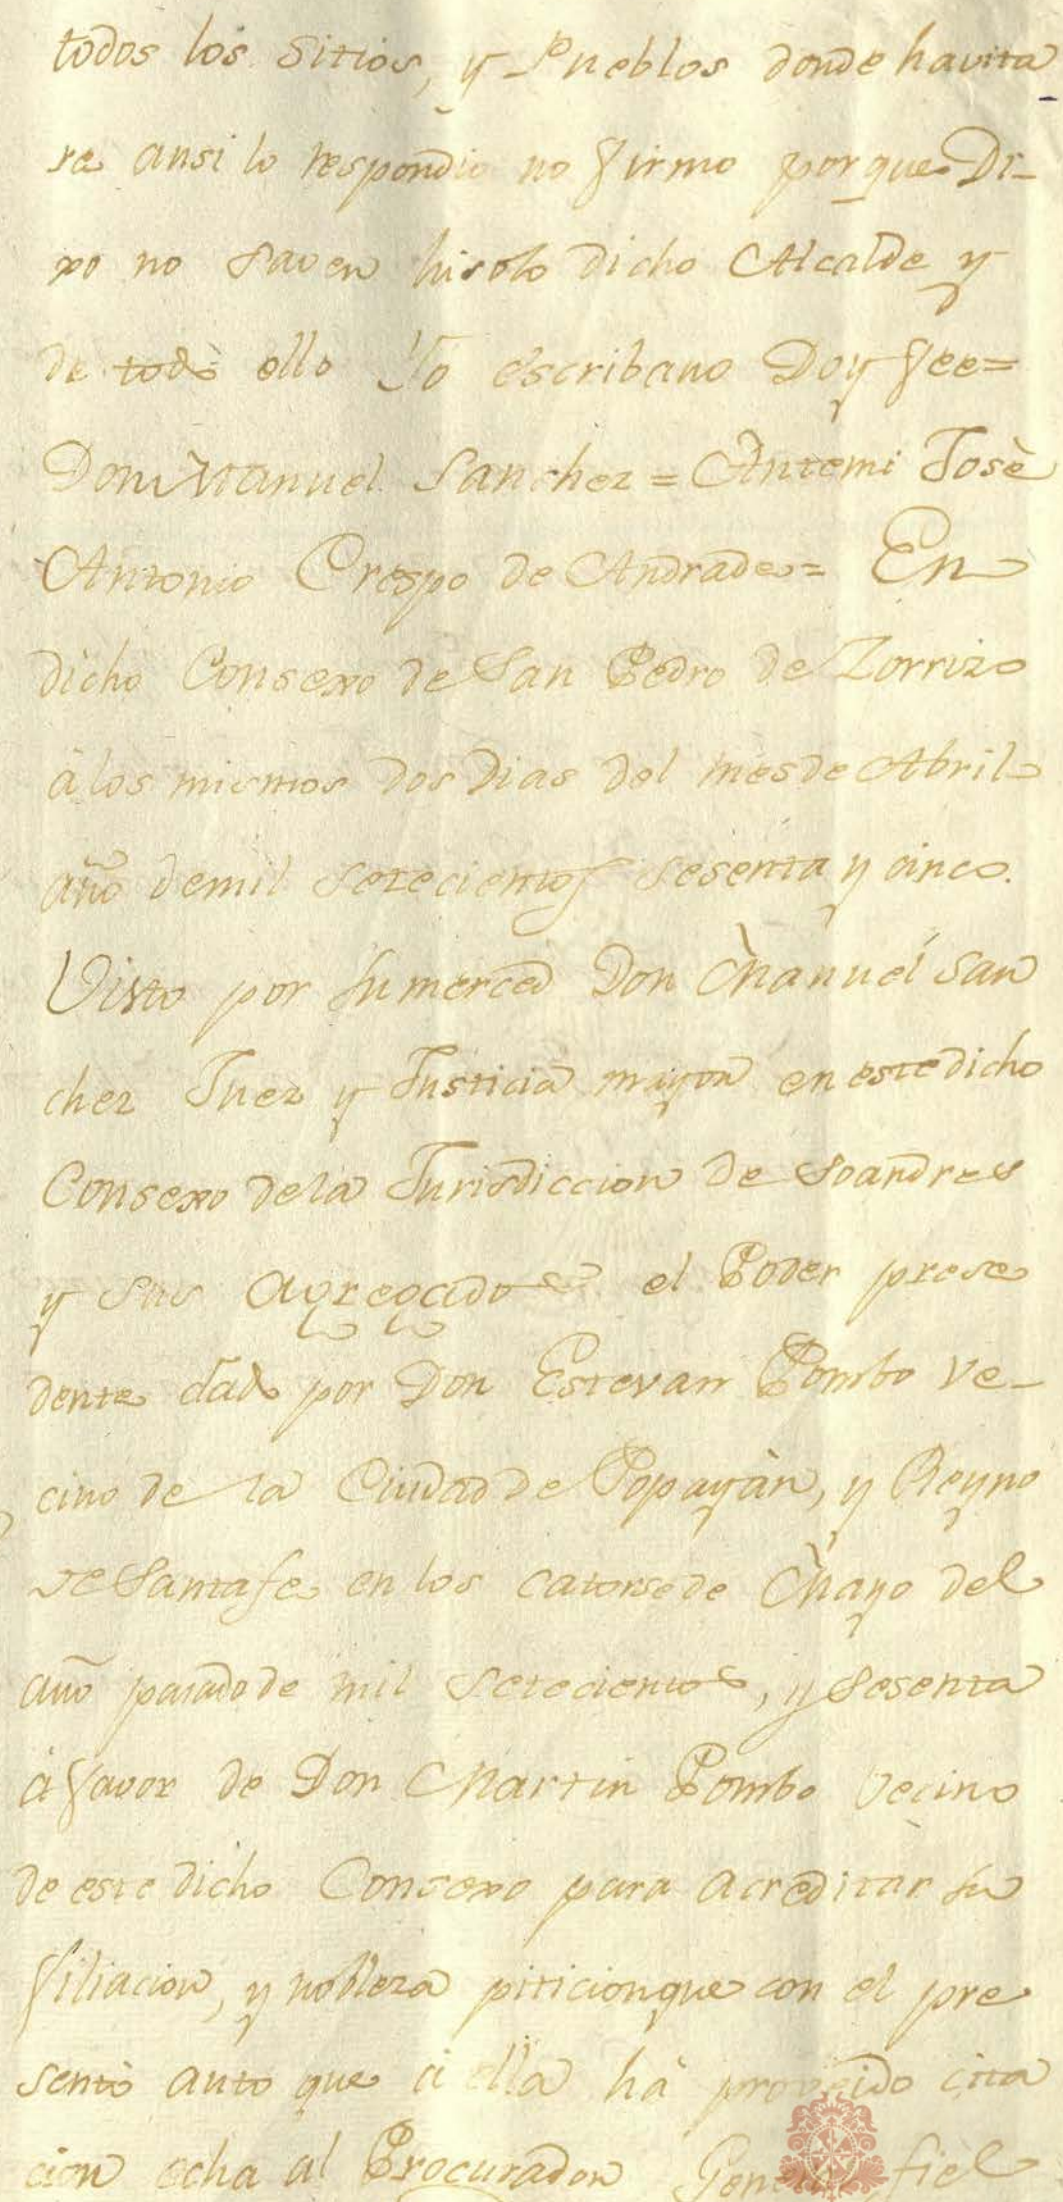 todos los Sitios, y Pueblos donde havita
re ansi lo respondio no firmo porque Di-
xo no saven hisolo dicho Alcalde y
de todo ello Yo escribano Doy fee=
Don Manuel Sanchez = Antemi Josè
Antonio Crespo de Andrade= En
dicho Consexo de San Pedro de Zorrizo
à los mismos dos Dias del mes de Abril
año demil setecientos sesenta y cinco.
Visto por su merced Don Manuel San
chez Juez y Justicia mayor en este dicho
Consexo dela Jurisdiccion de Soandres
y sus agregados el Poder prese
dente dado por Don Estevan Pombo ve-
cino de la Ciudad de Popayàn, y Reyno
de Santafe en los catorse de Mayo del
año pasado de mil setecientos, y sesenta
à favor de Don Martin Pombo vecino
de este dicho Consexo para acreditar su
filiacion, y nobleza piticion que con el pre
sentò auto que à ella hà proveido cita
cion echa al Procurador General, fiel